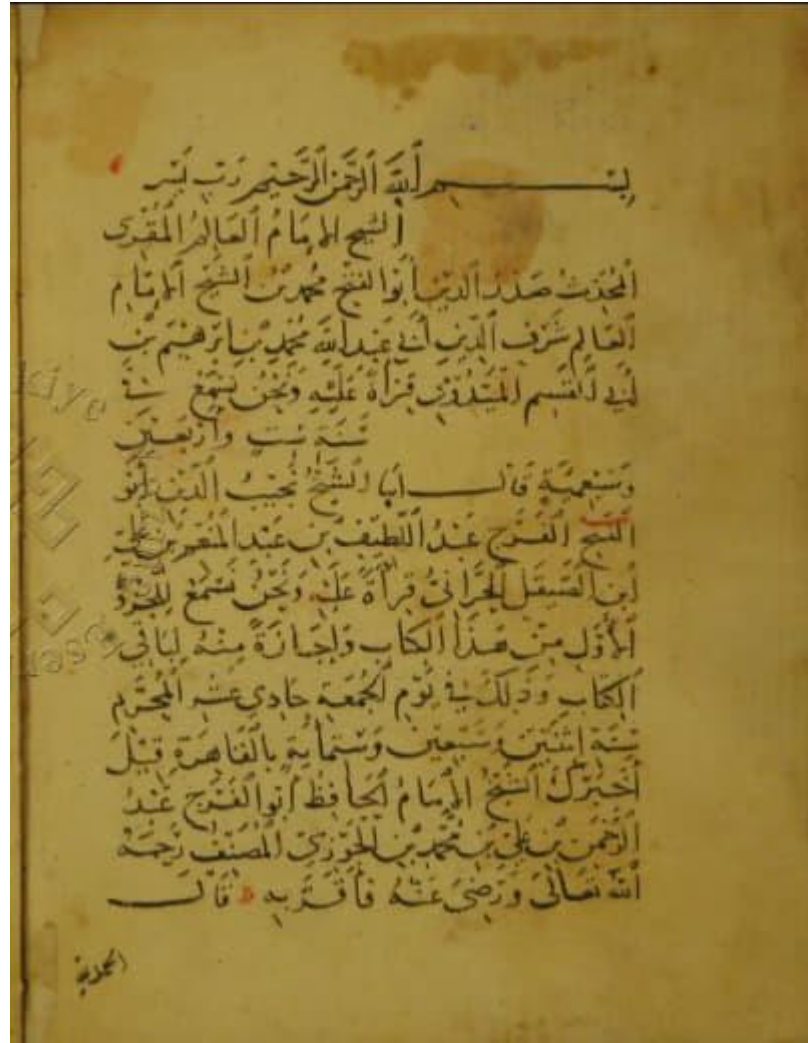 بسم الله الرحمن الرحيم رب يسر
الشيخ الإمام العالم المقرئ
المحدث صدر الدين أبو الفتح محمد بن الشيخ الإمام
العالم شرف الدين أبي عبد الله محمد بن ابرهيم بن
أبي القسم الميدومي قراة عليه ونحن نسمع في
سنة ست وأربعين
وسبعمية قال أبا الشيخ نجيب الدين أبو
الفرج عبد اللطيف بن عبد المنعم بن علي
ابن الصيقل الحراني قراة عليه ونحن نسمع للجزء
الأول من هذا الكتاب وإجازة منه لباقي
الكتاب وذلك في يوم الجمعة حادي عشر المحرم
سنة اثنتين وسبعين وستماية بالقاهرة قيل
أخبرك الشيخ الإمام الحافظ أبو الفرج عبد
الرحمن بن علي بن محمد بن الجوزي المصنف رحمة
الله تعالى ورضي عنه فأقر به قال
الحمد لله